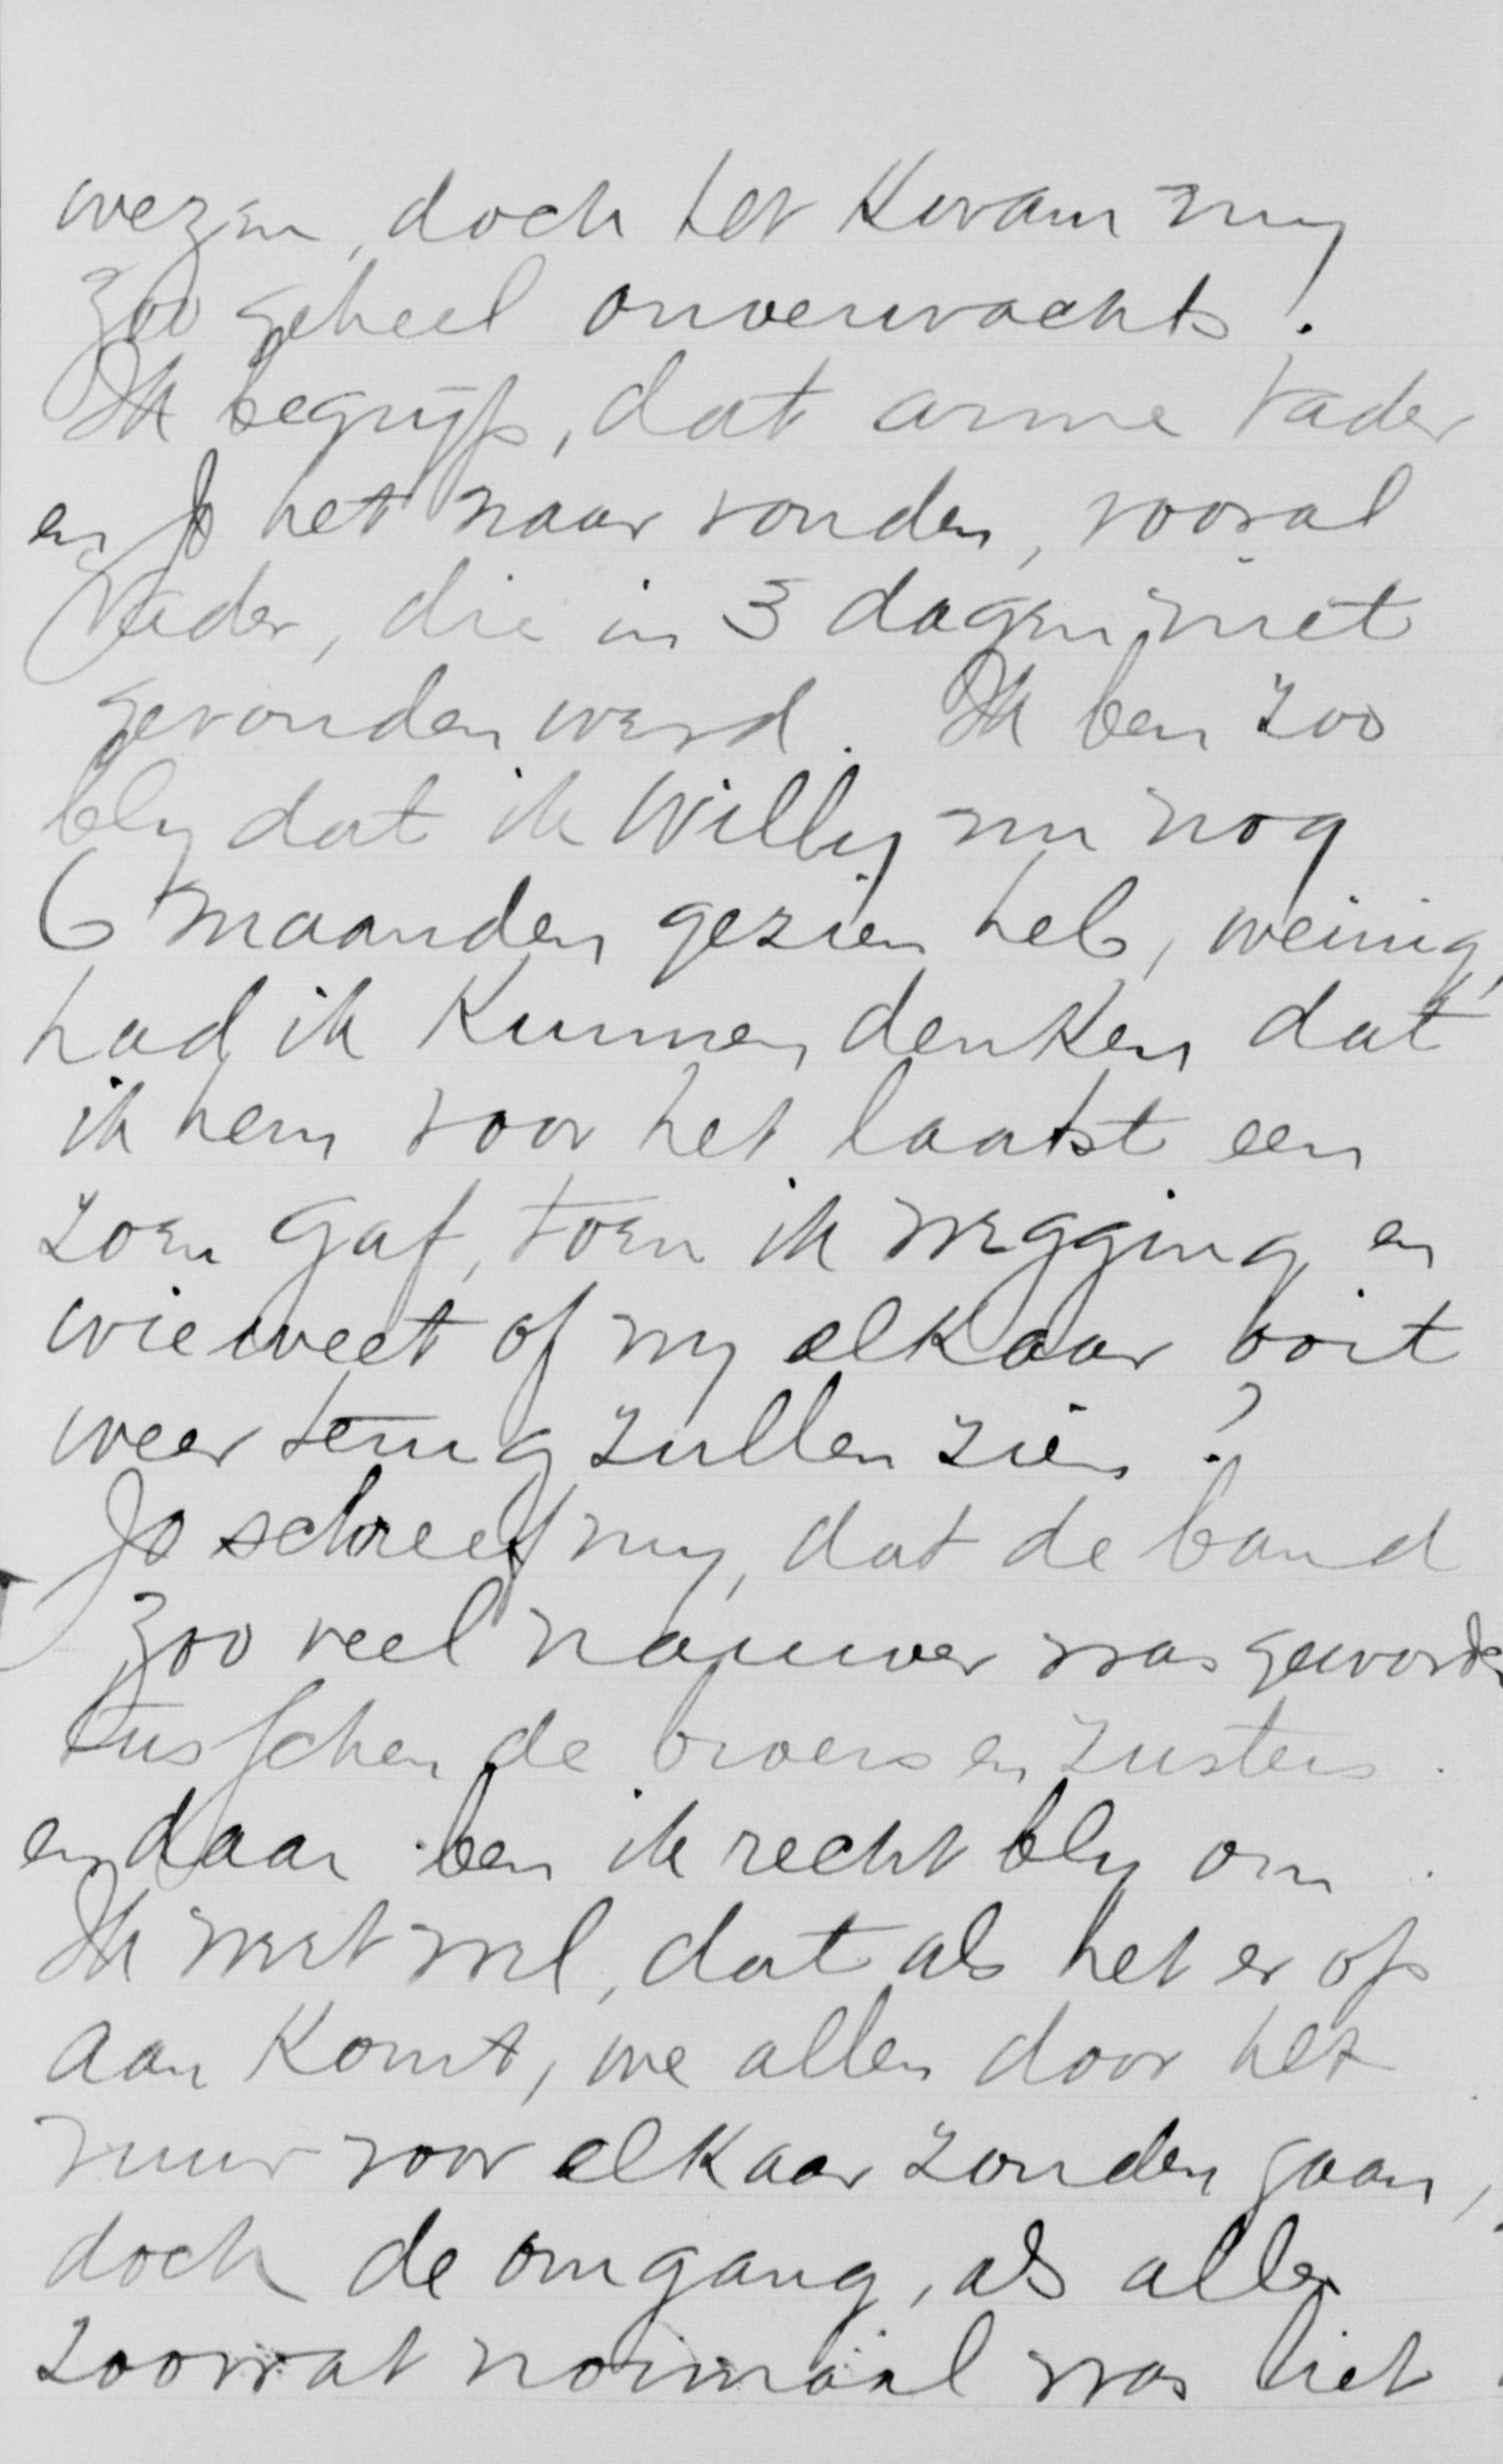 wezen, doch het kwam my
zoo geheel onverwachts!
Ik begryp, dat arme Vader
en Jo het naar vonden, vooral
Vader, die in 3 dagen niet
gevonden werd. Ik ben zoo
bly dat ik Willy nu nog
6 maanden gezien heb, weinig,
had ik kunnen denken dat
ik hem voor het laatst een
zoen gaf, toen ik wegging en
wie weet of wy elkaar ooit
weer terug zullen zien?
Jo schreef my, dat de band
zoo veel nauwer was geworden
tusschen de broers en zusters.
en daar ben ik recht bly om.
Ik weet wel, dat als het er op
aan komt, we allen door het
vuur voor elkaar zouden gaan,
doch de omgang, als alles
zoowat normaal was liet